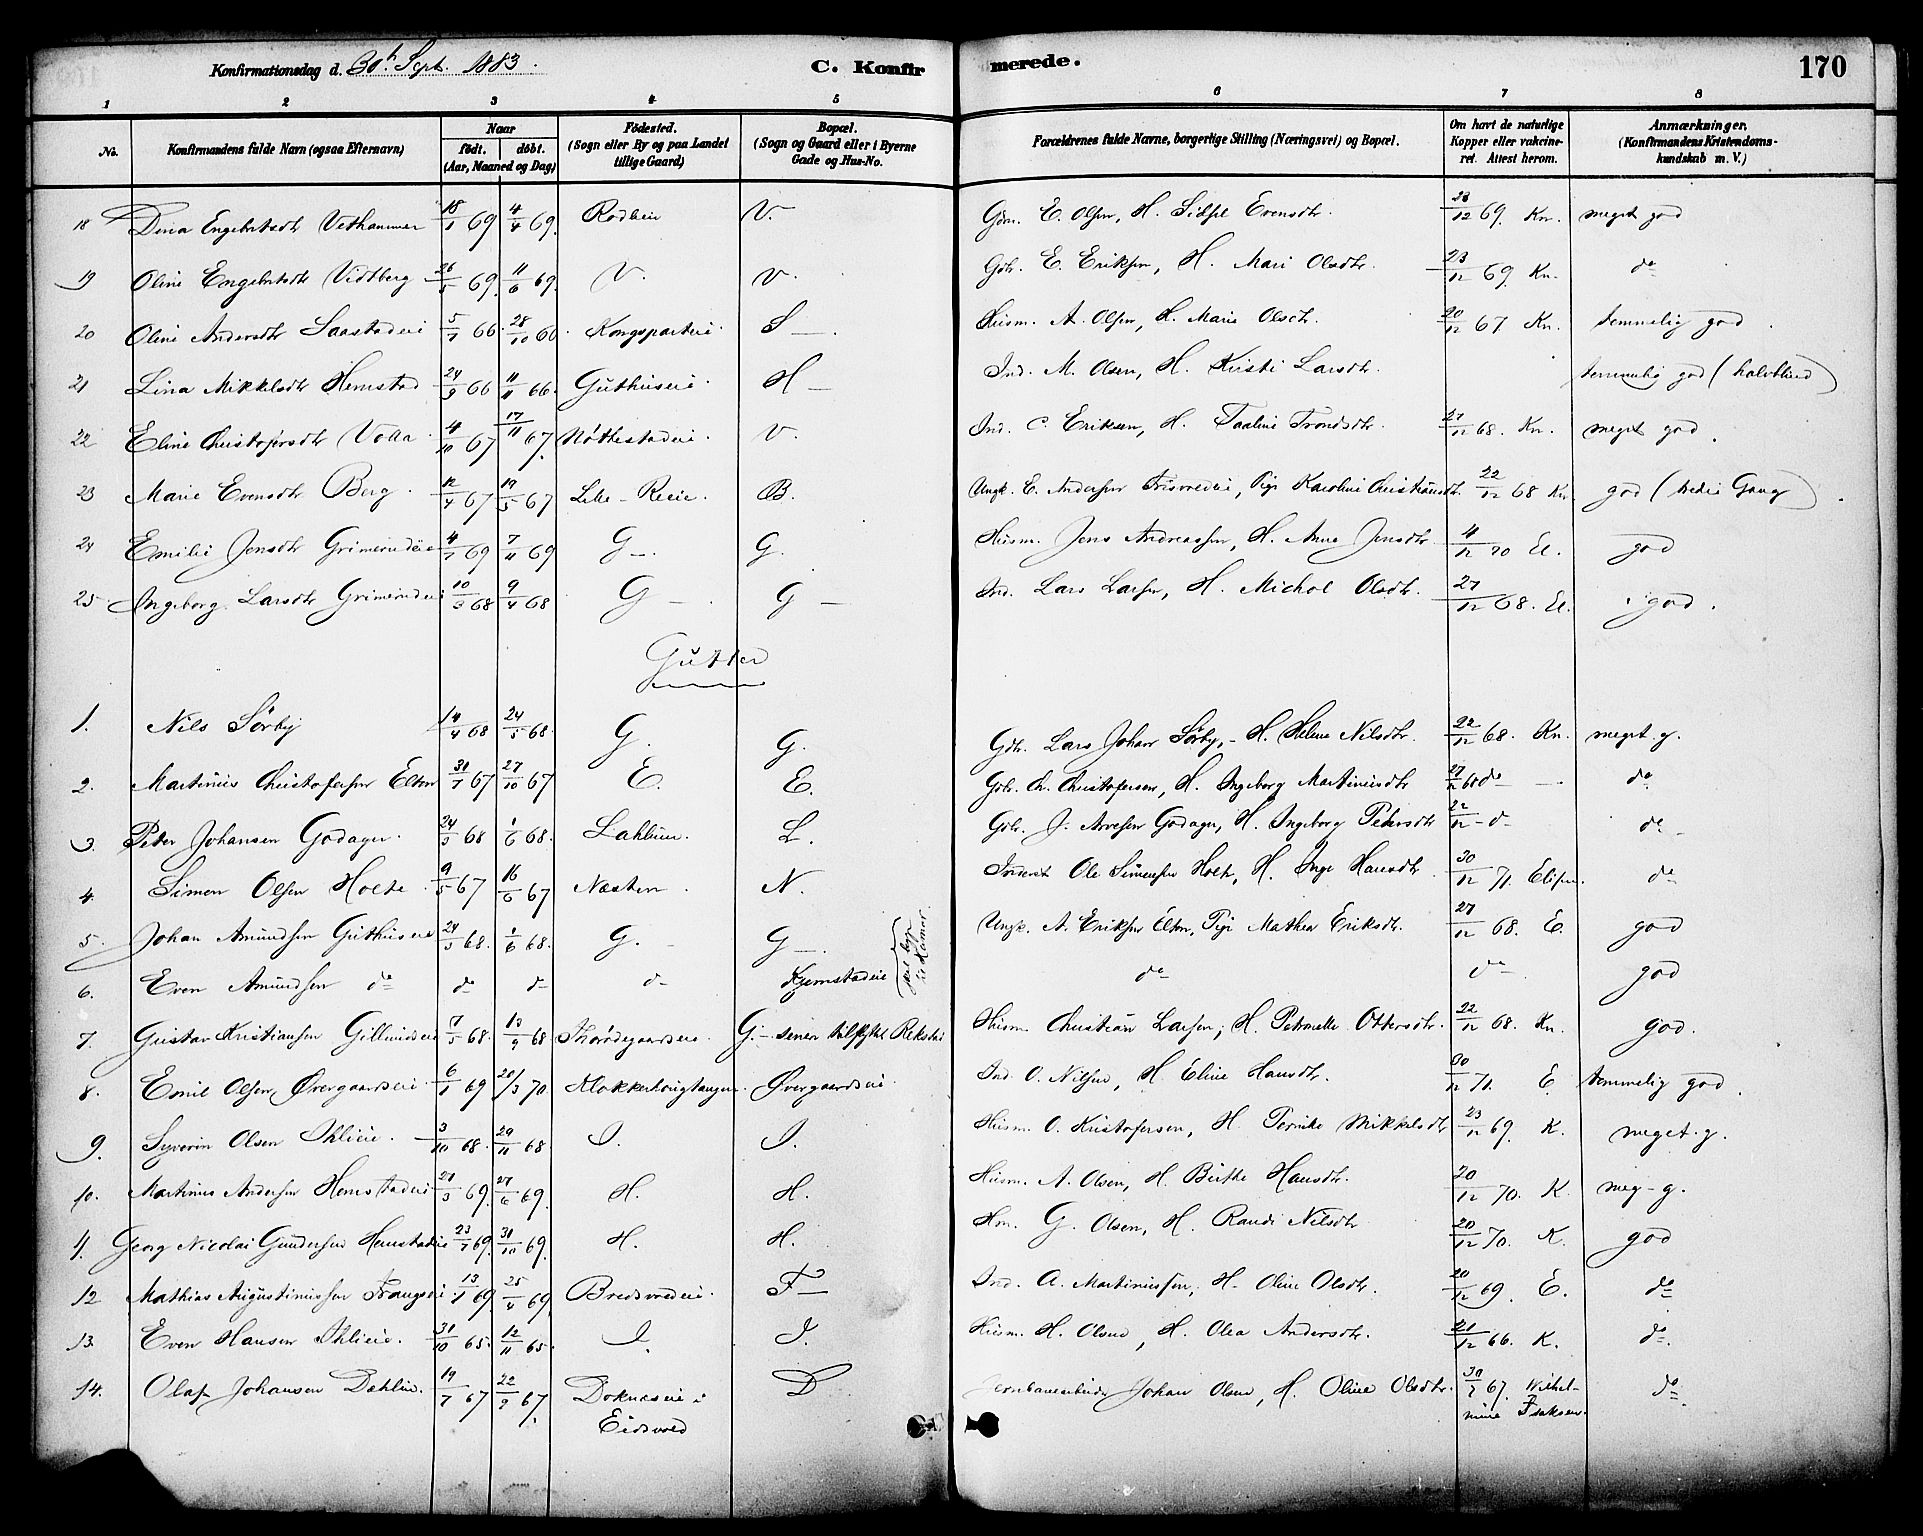 Konfirmationsdag d. 30t Sept. 1883. C. Konfirmerede. 170
1 2 3 4 5 6 7 8
No. Konfirmandens fulde Navn (ogsaa Efternavn) Naar födt. döbt. (Aar, Maaned og Dag) Födested. (Sogn eller By og paa Landet tillige Gaard) Bopæl. (Sogn og Gaard eller i Byerne Gade og Hus-No. Forældrenes fulde Navne, borgerlige Stilling (Næringsvei) og Bopæl. Om havt de naturlige Kopper eller vakcineret. Attest herom. Anmærkninger. (Konfirmandens Kristendomskundskab m. V.)
18 Dina Engebretsdtr Vethammer 18/1 69 4/4 69. V. Gdm. E. Olsen, H. Sidsel Evensdtr. 28/12 69. Kn. meget god
19 Oline Engebretsdtr Vidtberg 26/5 69. 11/6 69. V. V. Gdr. E. Eriksen, H. Mari Olsdtr. 23/12 69. Kn. do
20 Oline Andersdtr Saastadeie 5/7 66. 28/10 66. Kongsparteie. S — Husm. A. Olsen, H. Marie Olsdtr. 20/12 67. Kn. temmelig god.
21 Lina Mikkelsdtr Hemstad 24/9 66 11/11 66. Guthuseie. H — Ind. M. Olsen, H. Kristi Larsdtr. temmelig god (halvblind)
22 Eline Christofersdtr Volla. 4/10 67 17/11 67. Nöttestadeie. V. Ind. C. Eriksen, H. Taaline Trondsdtr. 27/12 68. Kn. meget god.
23 Marie Evensdtr Berg. 12/4 67 19/5 67 B. Ungk. E. Andersen, Pige Karoline Christiansdtr. 22/12 68 Kn. god (tredie Gang)
24 Emilie Jensdtr Grimerudeie 4/7 69 7/11 69 G —. G. Husm. Jens Andreassen, H. Anne Jensdtr 4/12 70 El. god
25 Ingeborg Larsdtr Grimerudeie 10/3 68 9/4 68 G —. G — Ind. Lars Larsen, H. Michol Olsdtr. 27/12 68. El. god.
Gutter
1. Nils Sörby 14/4 68 24/5 68. G. G. Gdr. Lars Johan Sörby, H. Helene Nilsdtr. 22/12 68. Kn. meget g.
2. Martinius Christofersen Elton 31/7 67 27/10 67 E. E. Gdr. Ch. Christofersen, H. Ingeborg Martiniusdtr 27/12 do — do
3. Peder Johansen Godager. 24/3 68 1/6 68. L. Gdr. J. Arvesen Godager, H. Ingeborg Pedersdtr 22/12 - d - do
4. Simen Olsen Holte. 9/5 67 16/6 67 Næsten. N. Inderst Ole Simensen Holt, H. Inge Hansdtr. 30/12 71. do
5. Johan Amundsen Guthuseie 24/3 68. 1/6 68. G. — G —. Ungk. A. Eriksen Elton, Pige Mathea Eriksdtr. 27/12 68. E. god
6. Even Amundsen do do d— d— Kjemstadeie do do god
7. Gustav Kristiansen Gillundseie 7/5 68. 13/9 68 G. — senere tilflyttet Rekstad Husm. Christian Larsen, H. Petronelle Ottersdtr. 22/12 68. Kn. god.
8. Emil Olsen Övergaardseie. 6/1 69 20/3 70. Klokkerlougtangen. Övergaardseie. Ind. O. Nilsen, H. Eline Hansdtr. 30/12 71. E. temmelig god.
9. Syverin Olsen Ihlieie. 3/10 68. 29/11 68. I. I. Husm. O. Kristofersen, H. Pernike Mikkelsdtr 23/12 69. K. meget g.
10. Martinus Andersen Hemstadeie 21/3 69. 27/6 69. H. H. Husm. A. Olsen, H. Birthe Hansdtr. 20/12 70. K. meg-g.
11. Georg Nicolai Gundersen Hemstadeie 23/7 69. 31/10 69. H. H. Hm. G. Olsen, H. Randi Nilsdtr 20/12 70. K. god
12 Mathias Augustinussen Frangseie 13/1 69 25/4 69. Bredsvedeie. F — Ind. A. Martiniussen, H. Oline Olsdtr. 20/12 69. E. do
13. Even Hansen Ihlieie. 31/10 65. 12/11 65. I. I. Husm. H. Olsen, H. Olea Andersdtr. 21/12 66. K. do
14. Olaf Johansen Dæhlin. 19/7 67 22/9 67. Doknæseie i D Jernbanearbeider Johan Olsen, H. Oline Olsdtr. 30/7 67. Wilhel- do
Eidsvold mine Isaksen.